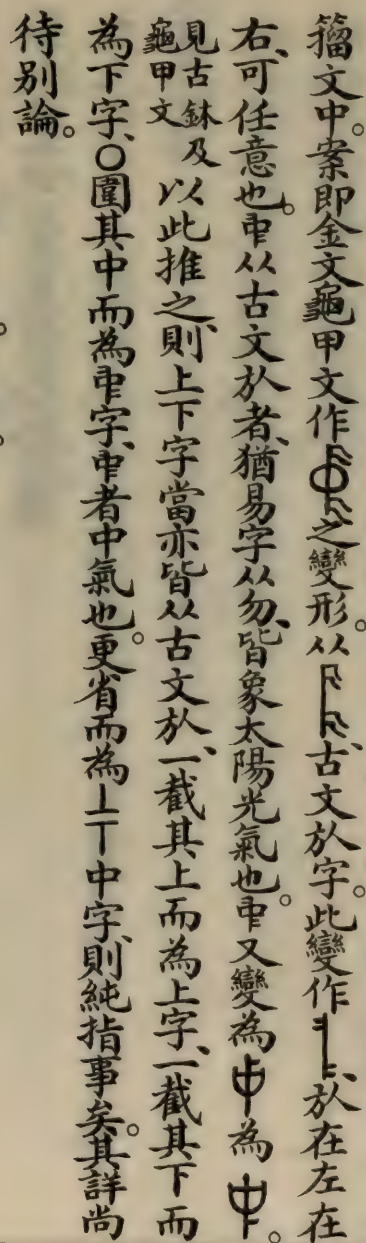 籀文中。案即金文龜甲文作之變形。从古文㫃字。此變作㫃在左在
右、可任意也。𠁩从古文㫃者、猶昜字从勿、皆象太陽光氣也。𠁩又變為為。
見古鉢及龜甲文 以此推之、則上下字當亦皆从古文㫃、一截其上而為上字、一截其下而
為下字、〇圍其中而為𠁩字、𠁩者中氣也。更省而為丄丅中字、則純指事矣。其詳尚
待別論。